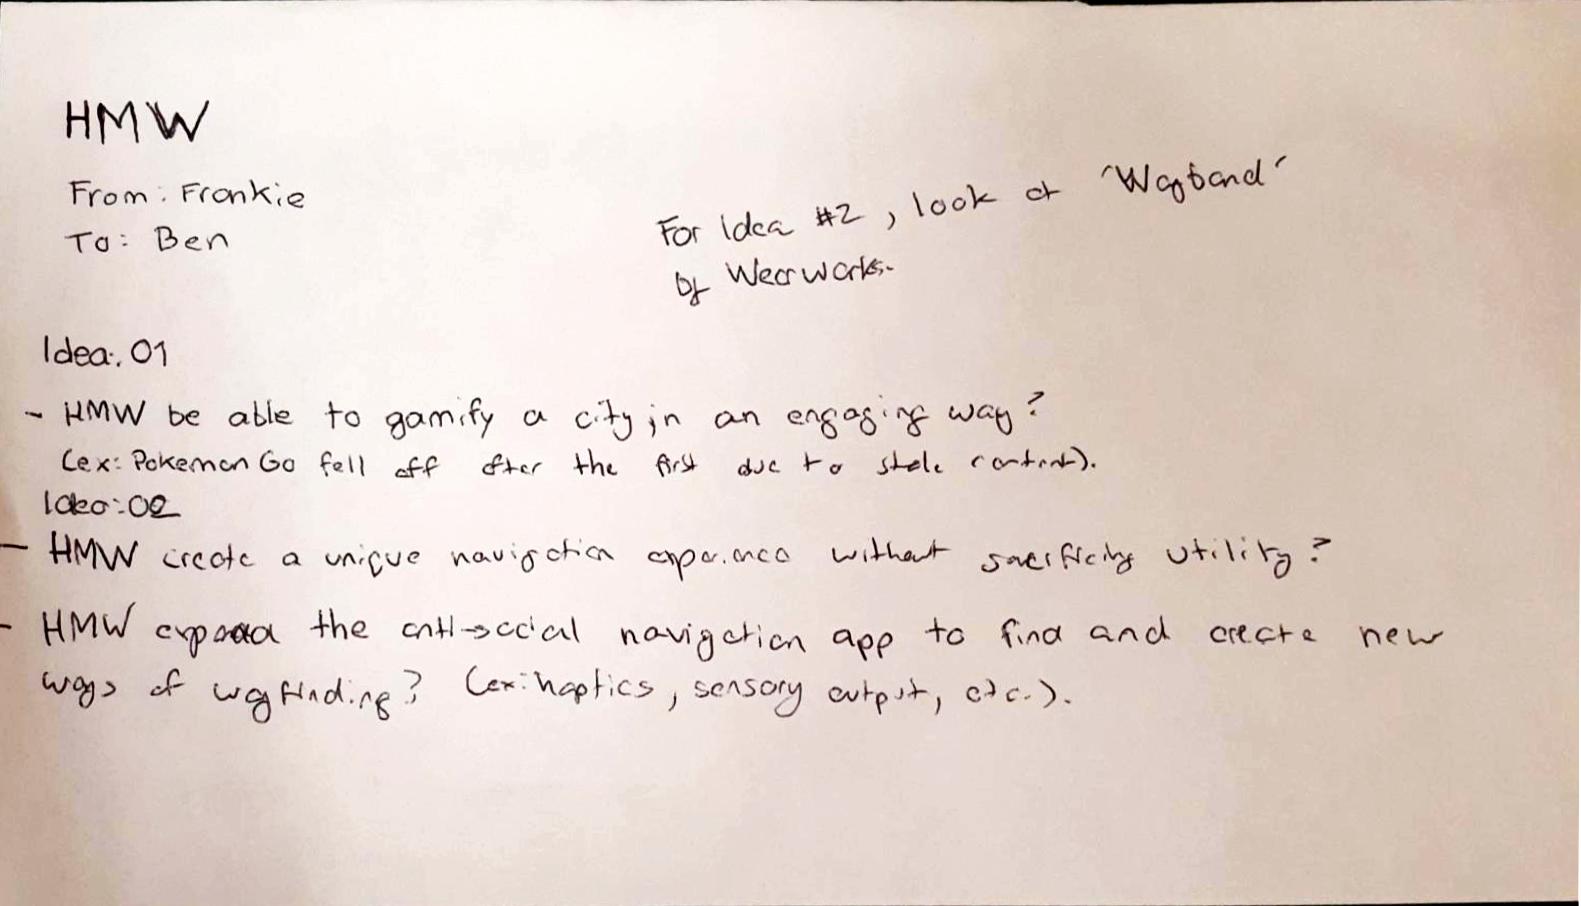 HMW
From: Frankie
To: Ben
For Idea #2, look at 'Wayband'
by Wearworks.
Idea: 01
- HMW be able to gamify a city in an engaging way?
(ex: Pokemon Go fell off after the first due to stale content).
Idea: 02
- HMW create a unique navigation experience without sacrificing utility?
- HMW expand the anti-social navigation app to find and create new
ways of wayfinding? (ex: haptics, sensory output, etc.).